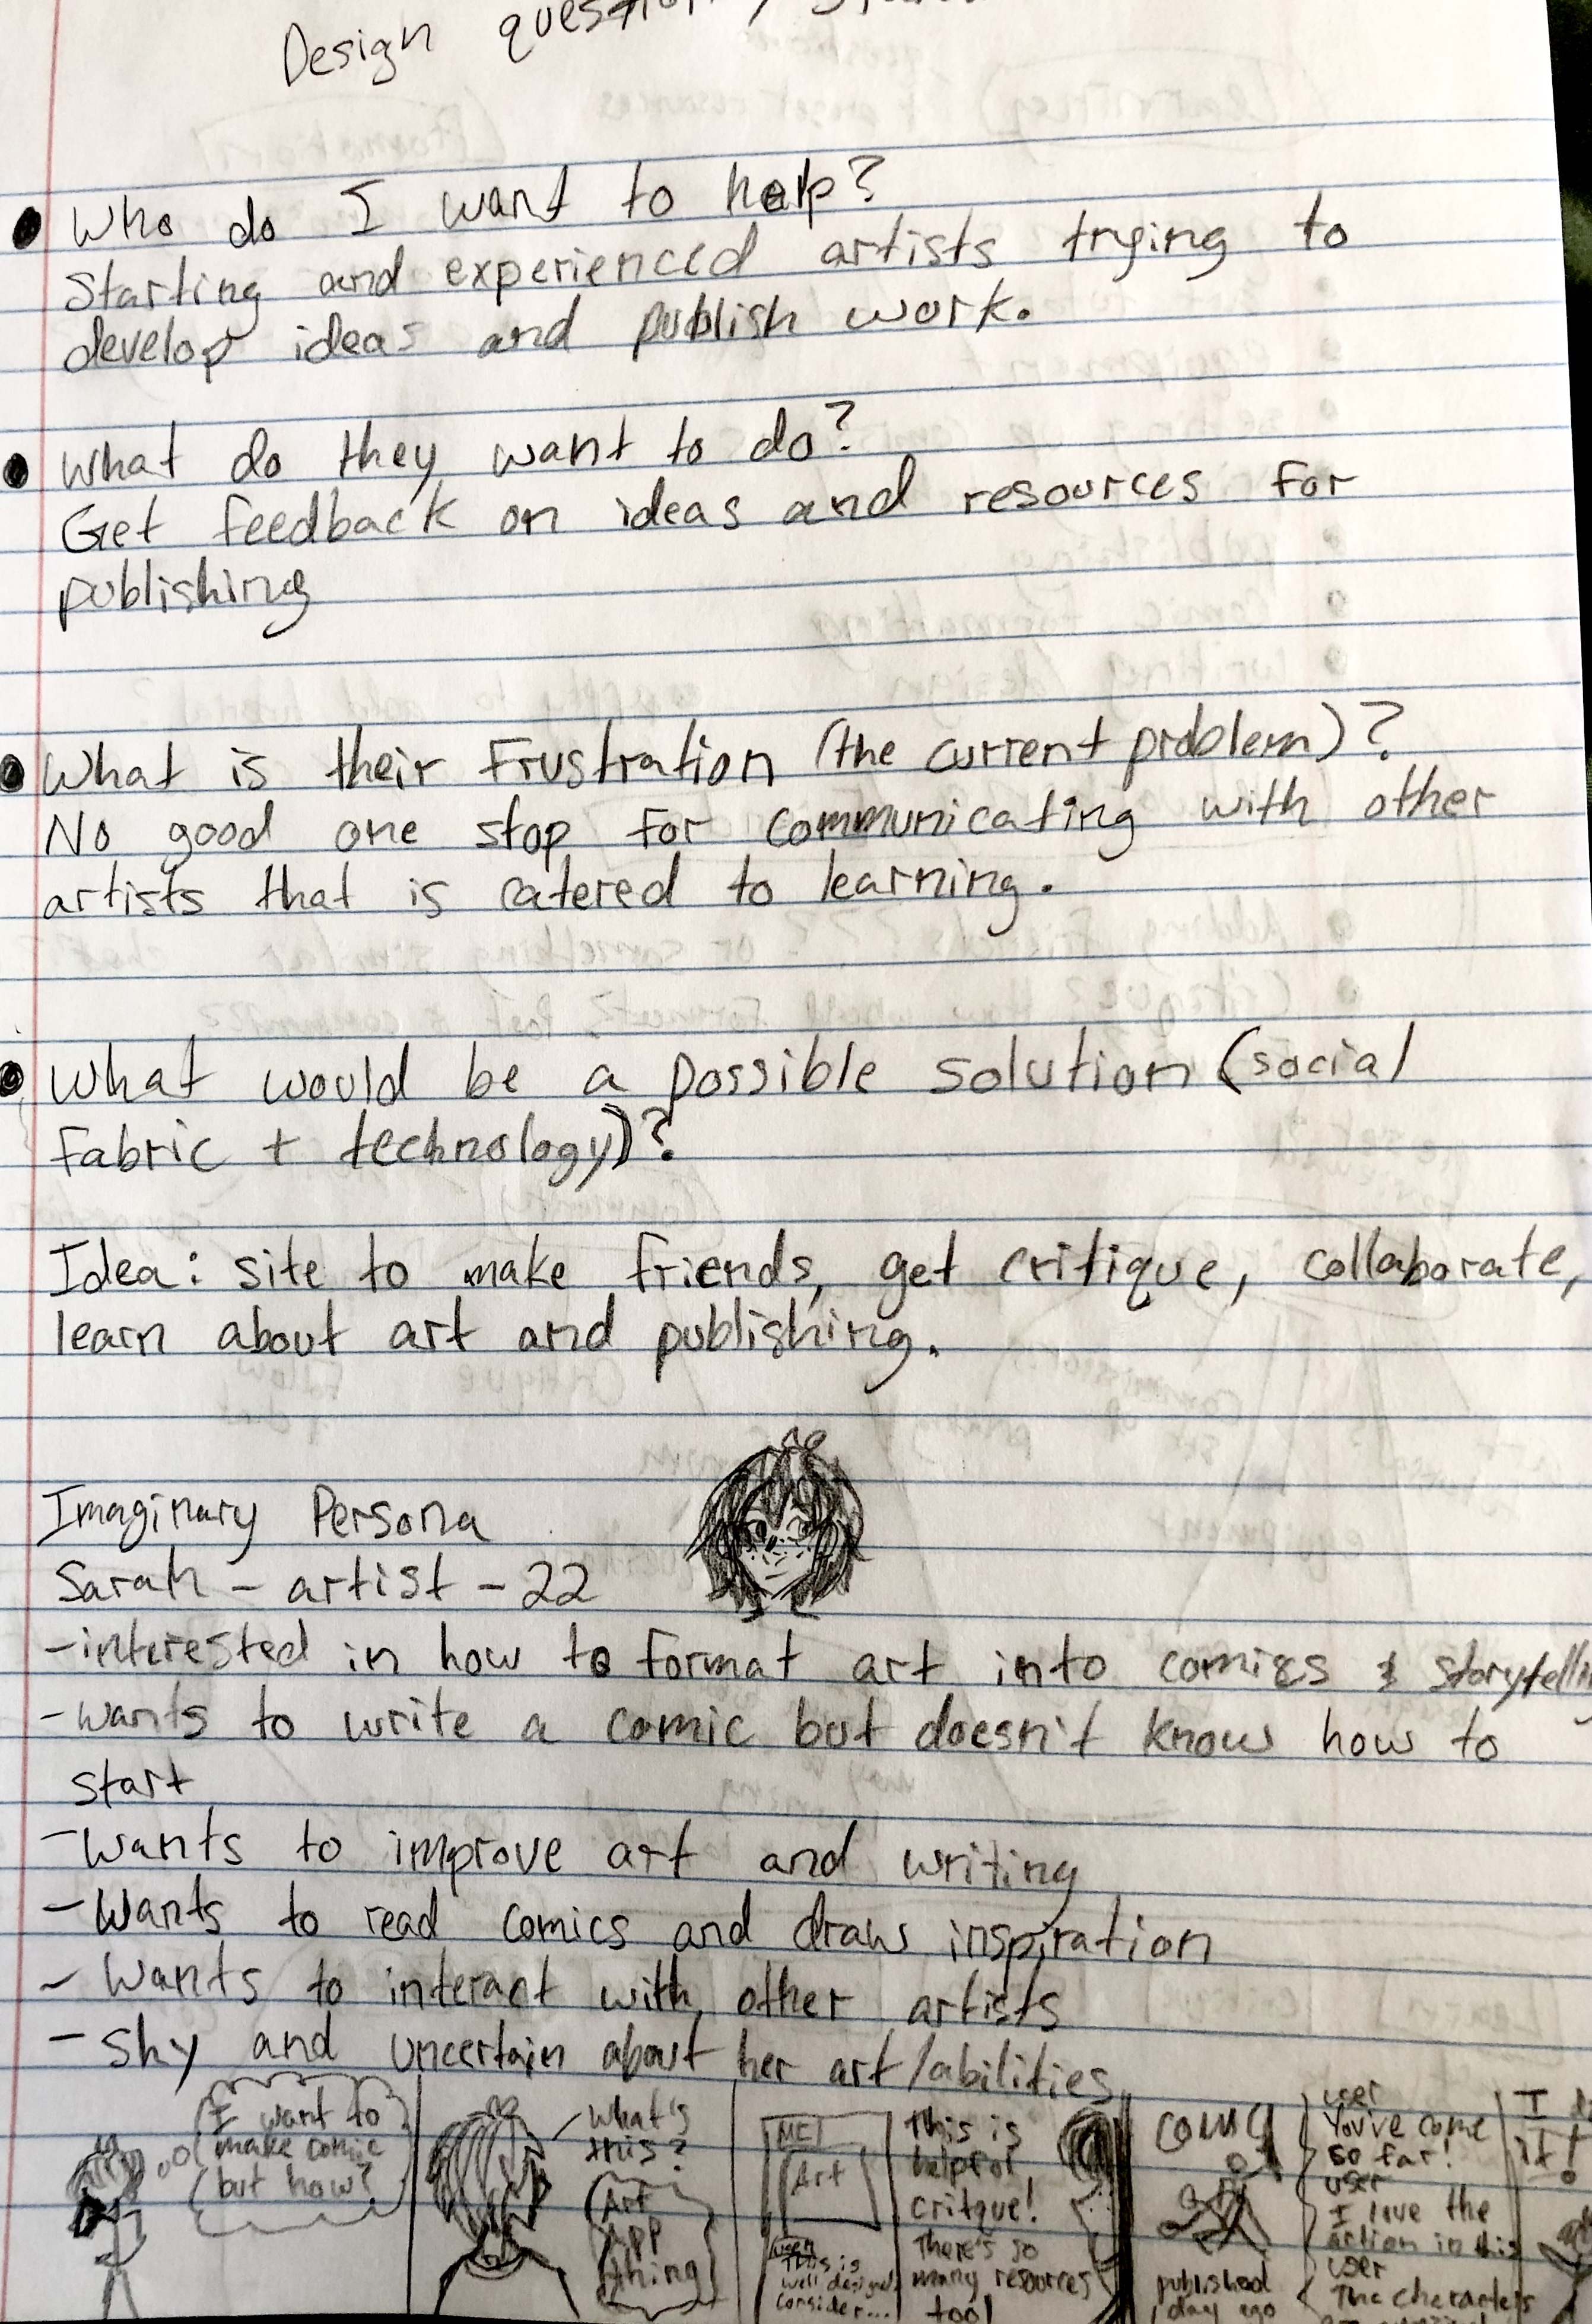 Design
Who do I want to help?
Starting and experienced artists trying to
develop ideas and publish work.
What do they want to do?
Get feedback on ideas and resources for
publishing
What is their frustration (the current problem)?
No good one stop for communicating with other
artists that is catered to learning.
What would be a possible solution (social
fabric + technology)?
Idea: site to make friends, get critique, collaborate,
learn about art and publishing.
Imaginary Persona
Sarah - artist - 22
- interested in how to format art into comics & storytelling
- wants to write a comic but doesn't know how to
start
- wants to improve art and writing
- Wants to read comics and draw inspiration
- Wants to interact with other artists
- shy and uncertain about her art/abilities
I want to
make comic
but how?
What's
this?
Art
App
thing
ME
Art
user
This is
well designed
consider...
This is
helpful
critque!
There's so
many resources
too!
comic
published
1 day ago
user
You've come
so far!
user
I love the
action in this
user
The characters
I
it!